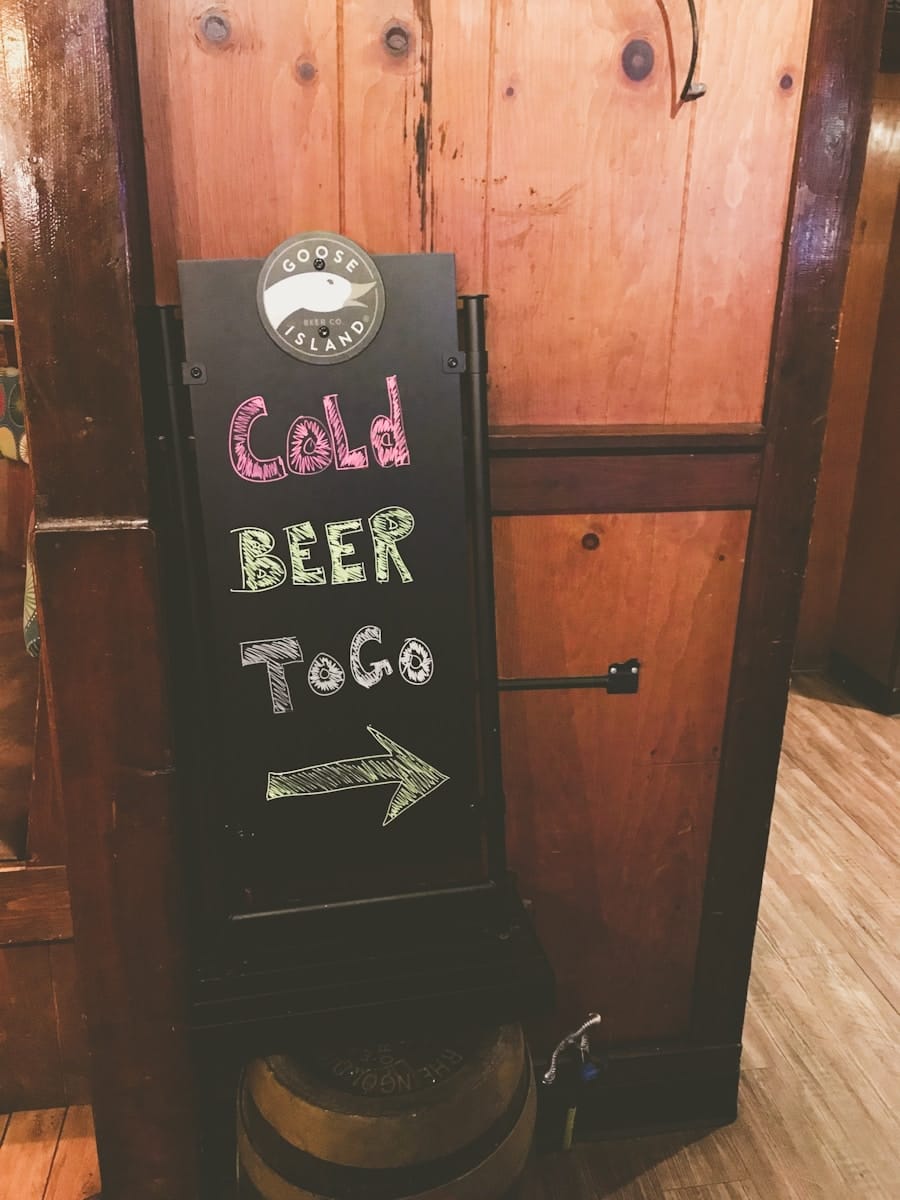 GOOSE
BEER CO.
ISLAND®
COLd
BEER
ToGo